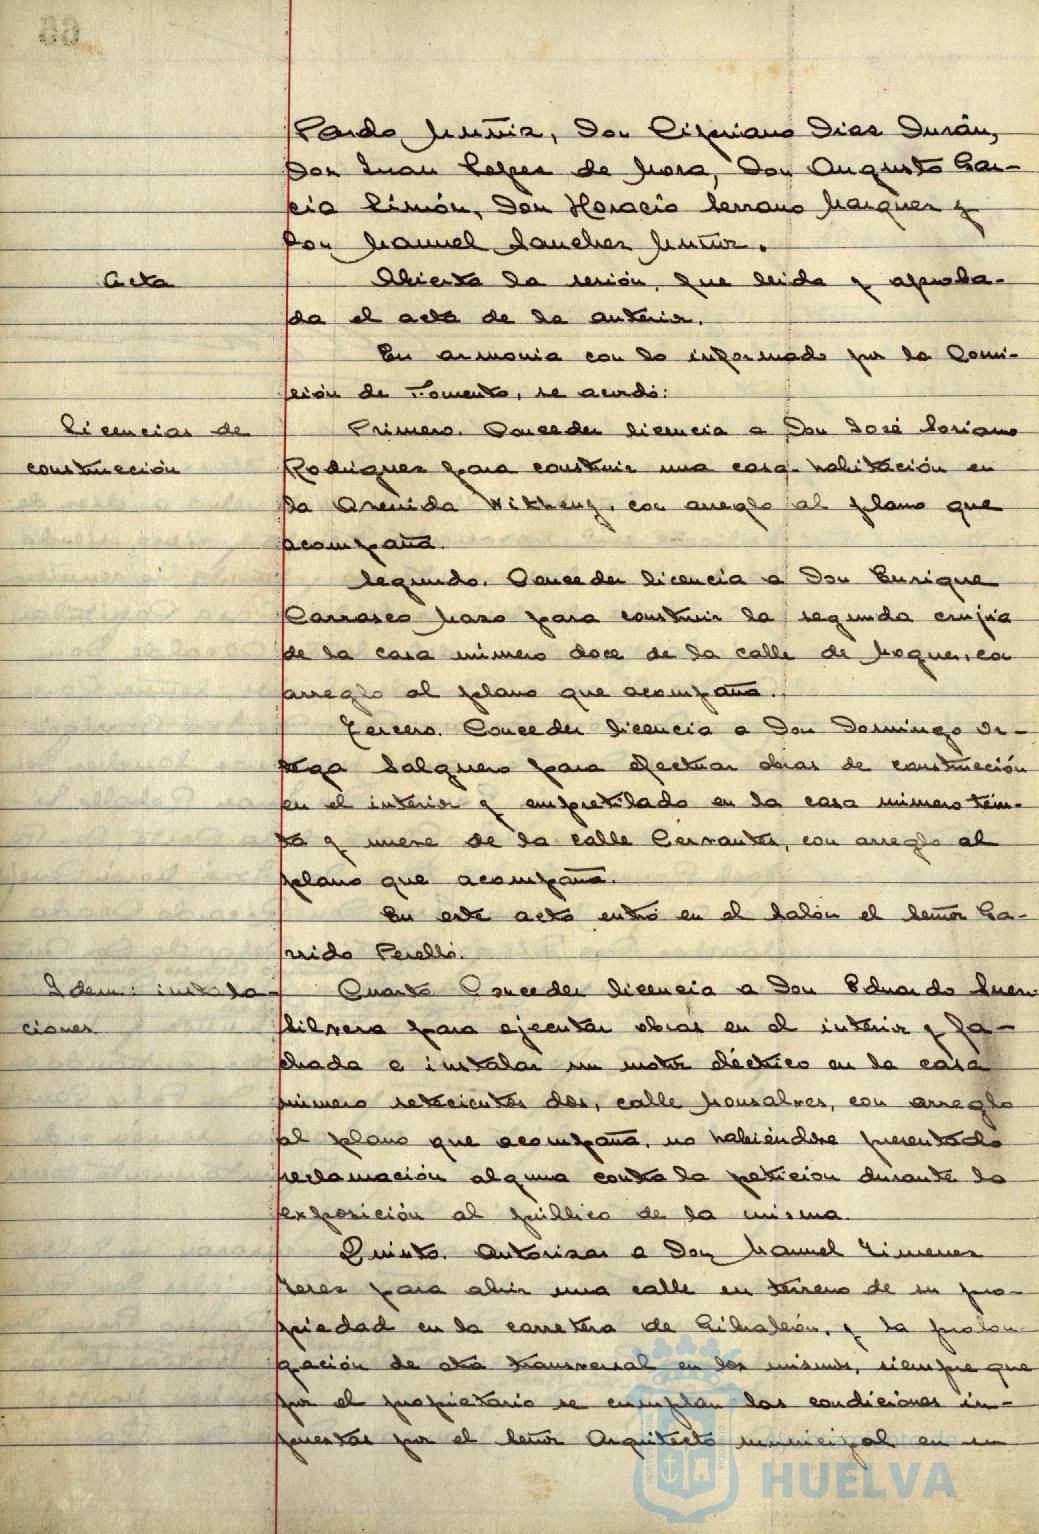 Pardo Muñiz, Don Cipriano Diaz Durán,
Don Juan Lopez de Mora, Don Augusto Gar-
cia Simón, Don Horacio Serrano Marquez y
Don Manuel Sanchez Muñiz.
Acta
Abierta la sesión, fue leida y aproba-
da el acta de la anterior.
En armonia con lo informado por la Comi-
sión de Fomento, se acordó:
Licencias de
construcción
Primero. Conceder licencia a Don José Soriano
Rodriguez para construir una casa-habitación en
la Avenida con arreglo al plano que
acompaña.
Segundo. Conceder licencia a Don Enrique
Carrasco Mazo para construir la segunda crujia
de la casa número doce de la calle de Moguer, con
arreglo al plano que acompaña.
Tercero. Conceder licencia a Don Domingo Or-
tega Salguero para efectuar obras de construcción
en el interior y empretilado en la casa número trein-
ta y nueve de la calle Cervantes, con arreglo al
plano que acompaña.
En este acto entró en el Salón el Señor Ga-
rrido Perelló.
Idem: instala-
ciones
Cuarto Conceder licencia a Don Eduardo
para ejecutar obras en el interior y fa-
chada e instalar un motor eléctrico en la casa
número setecientos dos, calle Monsalves, con arreglo
al plano que acompaña, no habiéndose presentado
reclamación alguna contra la petición durante la
exposición al público de la misma.
Quinto. Autorizar a Don Manuel Jimenez
Jerez para abrir una calle en terreno de su pro-
piedad en la carretera de Gibraleón, y la prolon-
gación de otra transversal en los mismos, siempre que
por el propietario se cumplan las condiciones im-
puestas por el Señor Arquitecto municipal en su
HUELVA